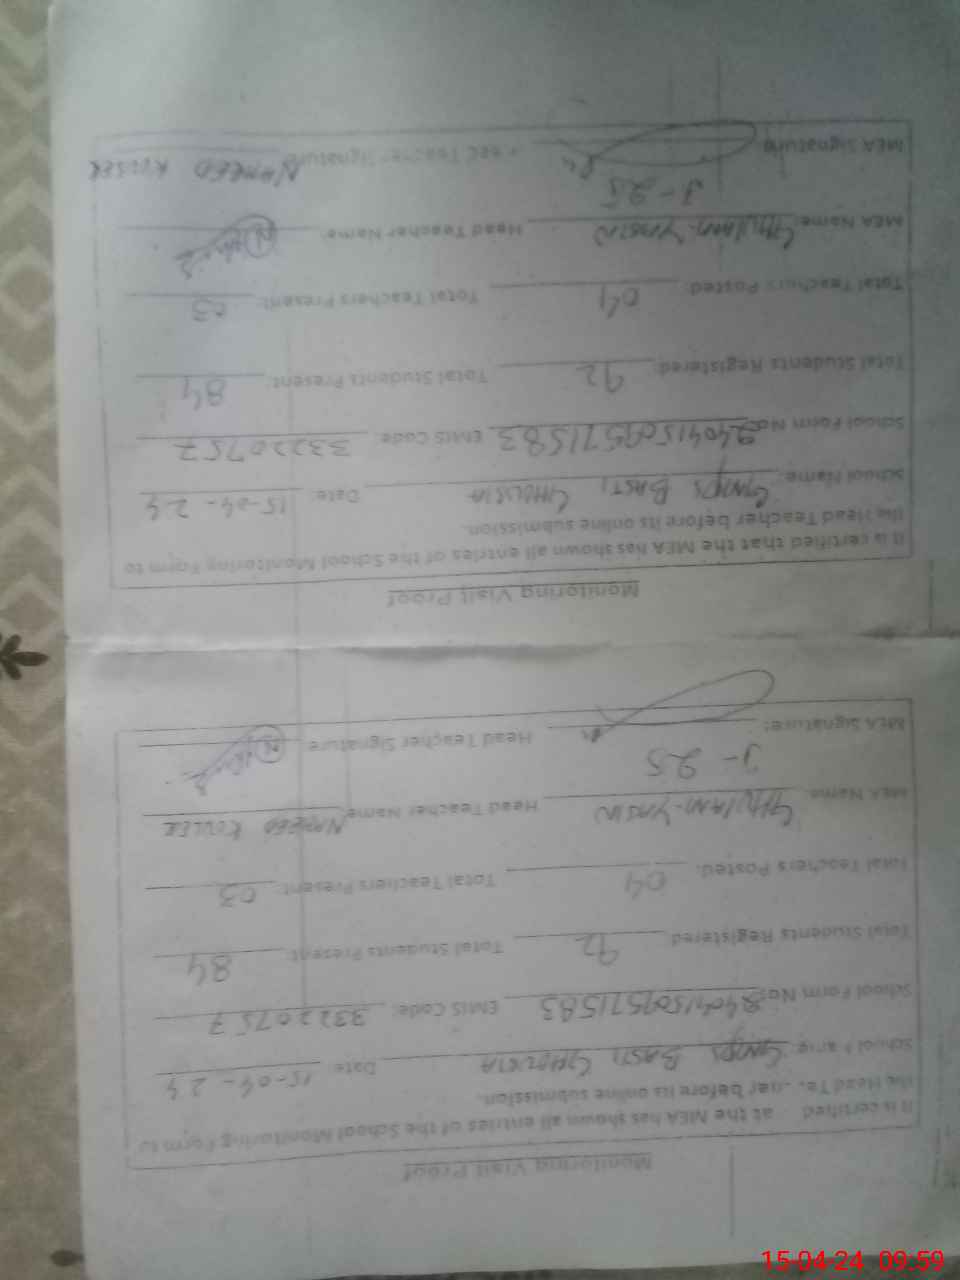 Monitoring Visit Proof
It is certified at the MEA has shown all entries of the School Monitoring Form to
the Head before its online submission.
School Name: BASTI Date: 15-04-24
School Form No: EMIS Code: 33220757
Total Students Registered: 92 Total Students Present: 84
Total Teachers Posted: 04 Total Teachers Present: 03
MEA Name: GHULAM YASIN Head Teacher Name:
J-25
MEA Signature: Head Teacher Signature:
Monitoring Visit Proof
It is certified that the MEA has shown all entries of the School Monitoring Form to
the Head Teacher before its online submission.
School Name: BASTI Date: 15-04-24
School Form No: EMIS Code: 33220757
Total Students Registered: 92 Total Students Present: 84
Total Teachers Posted: 04 Total Teachers Present: 03
MEA Name: GHULAM YASIN Head Teacher Name:
J-25
MEA Signature: Teacher Signature
15-04-24 09:59